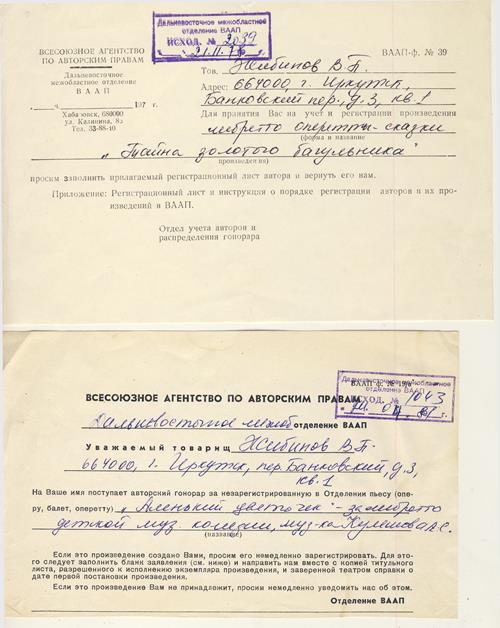 Дальневосточное межобластное
отделение ВААП
ИСХОД. № 3039
21.11.76
ВСЕСОЮЗНОЕ АГЕНТСТВО
ПО АВТОРСКИМ ПРАВАМ
Дальневосточное
межобластное отделение
ВААП
197 г.
Хабаровск, 680000
ул. Калинина, 83
Тел. 33-88-40
ВААП-ф. № 39
Тов. Жибинов В.П.
Адрес: 664000, г. Иркутск,
Банковский пер., д. 3, кв. 1
Для принятия Вас на учет и регистрации произведения
либретто оперетты-сказки
(форма и название
"Тайна золотого багульника"
произведения)
просим заполнить прилагаемый регистрационный лист автора и вернуть его нам.
Приложение: Регистрационный лист и инструкция о порядке регистрации авторов и их про-
изведений в ВААП.
Отдел учета авторов и
распределения гонорара
ВААП-ф. №
Дальневосточное межобластное
отделение ВААП
ИСХОД. № 1043
г.
ВСЕСОЮЗНОЕ АГЕНТСТВО ПО АВТОРСКИМ ПРАВАМ
Дальневосточное межоб отделение ВААП
Уважаемый товарищ Жибинов В.П.
664000, г. Иркутск, пер. Банковский, д. 3,
кв. 1
На Ваше имя поступает авторский гонорар за незарегистрированную в Отделении пьесу (опе-
ру, балет, оперетту) "Аленький цветочек" - за либретто
детской муз комедии, муз-ка Кулешова А.С.
(название)
Если это произведение создано Вами, просим его немедленно зарегистрировать. Для это-
го следует заполнить бланк заявления (см. ниже) и направить нам вместе с копией титульного
листа, разрешенного к исполнению экземпляра произведения, и заверенной театром справки о
дате первой постановки произведения.
Если это произведение Вам не принадлежит, просим немедленно уведомить нас об этом.
Отделение ВААП